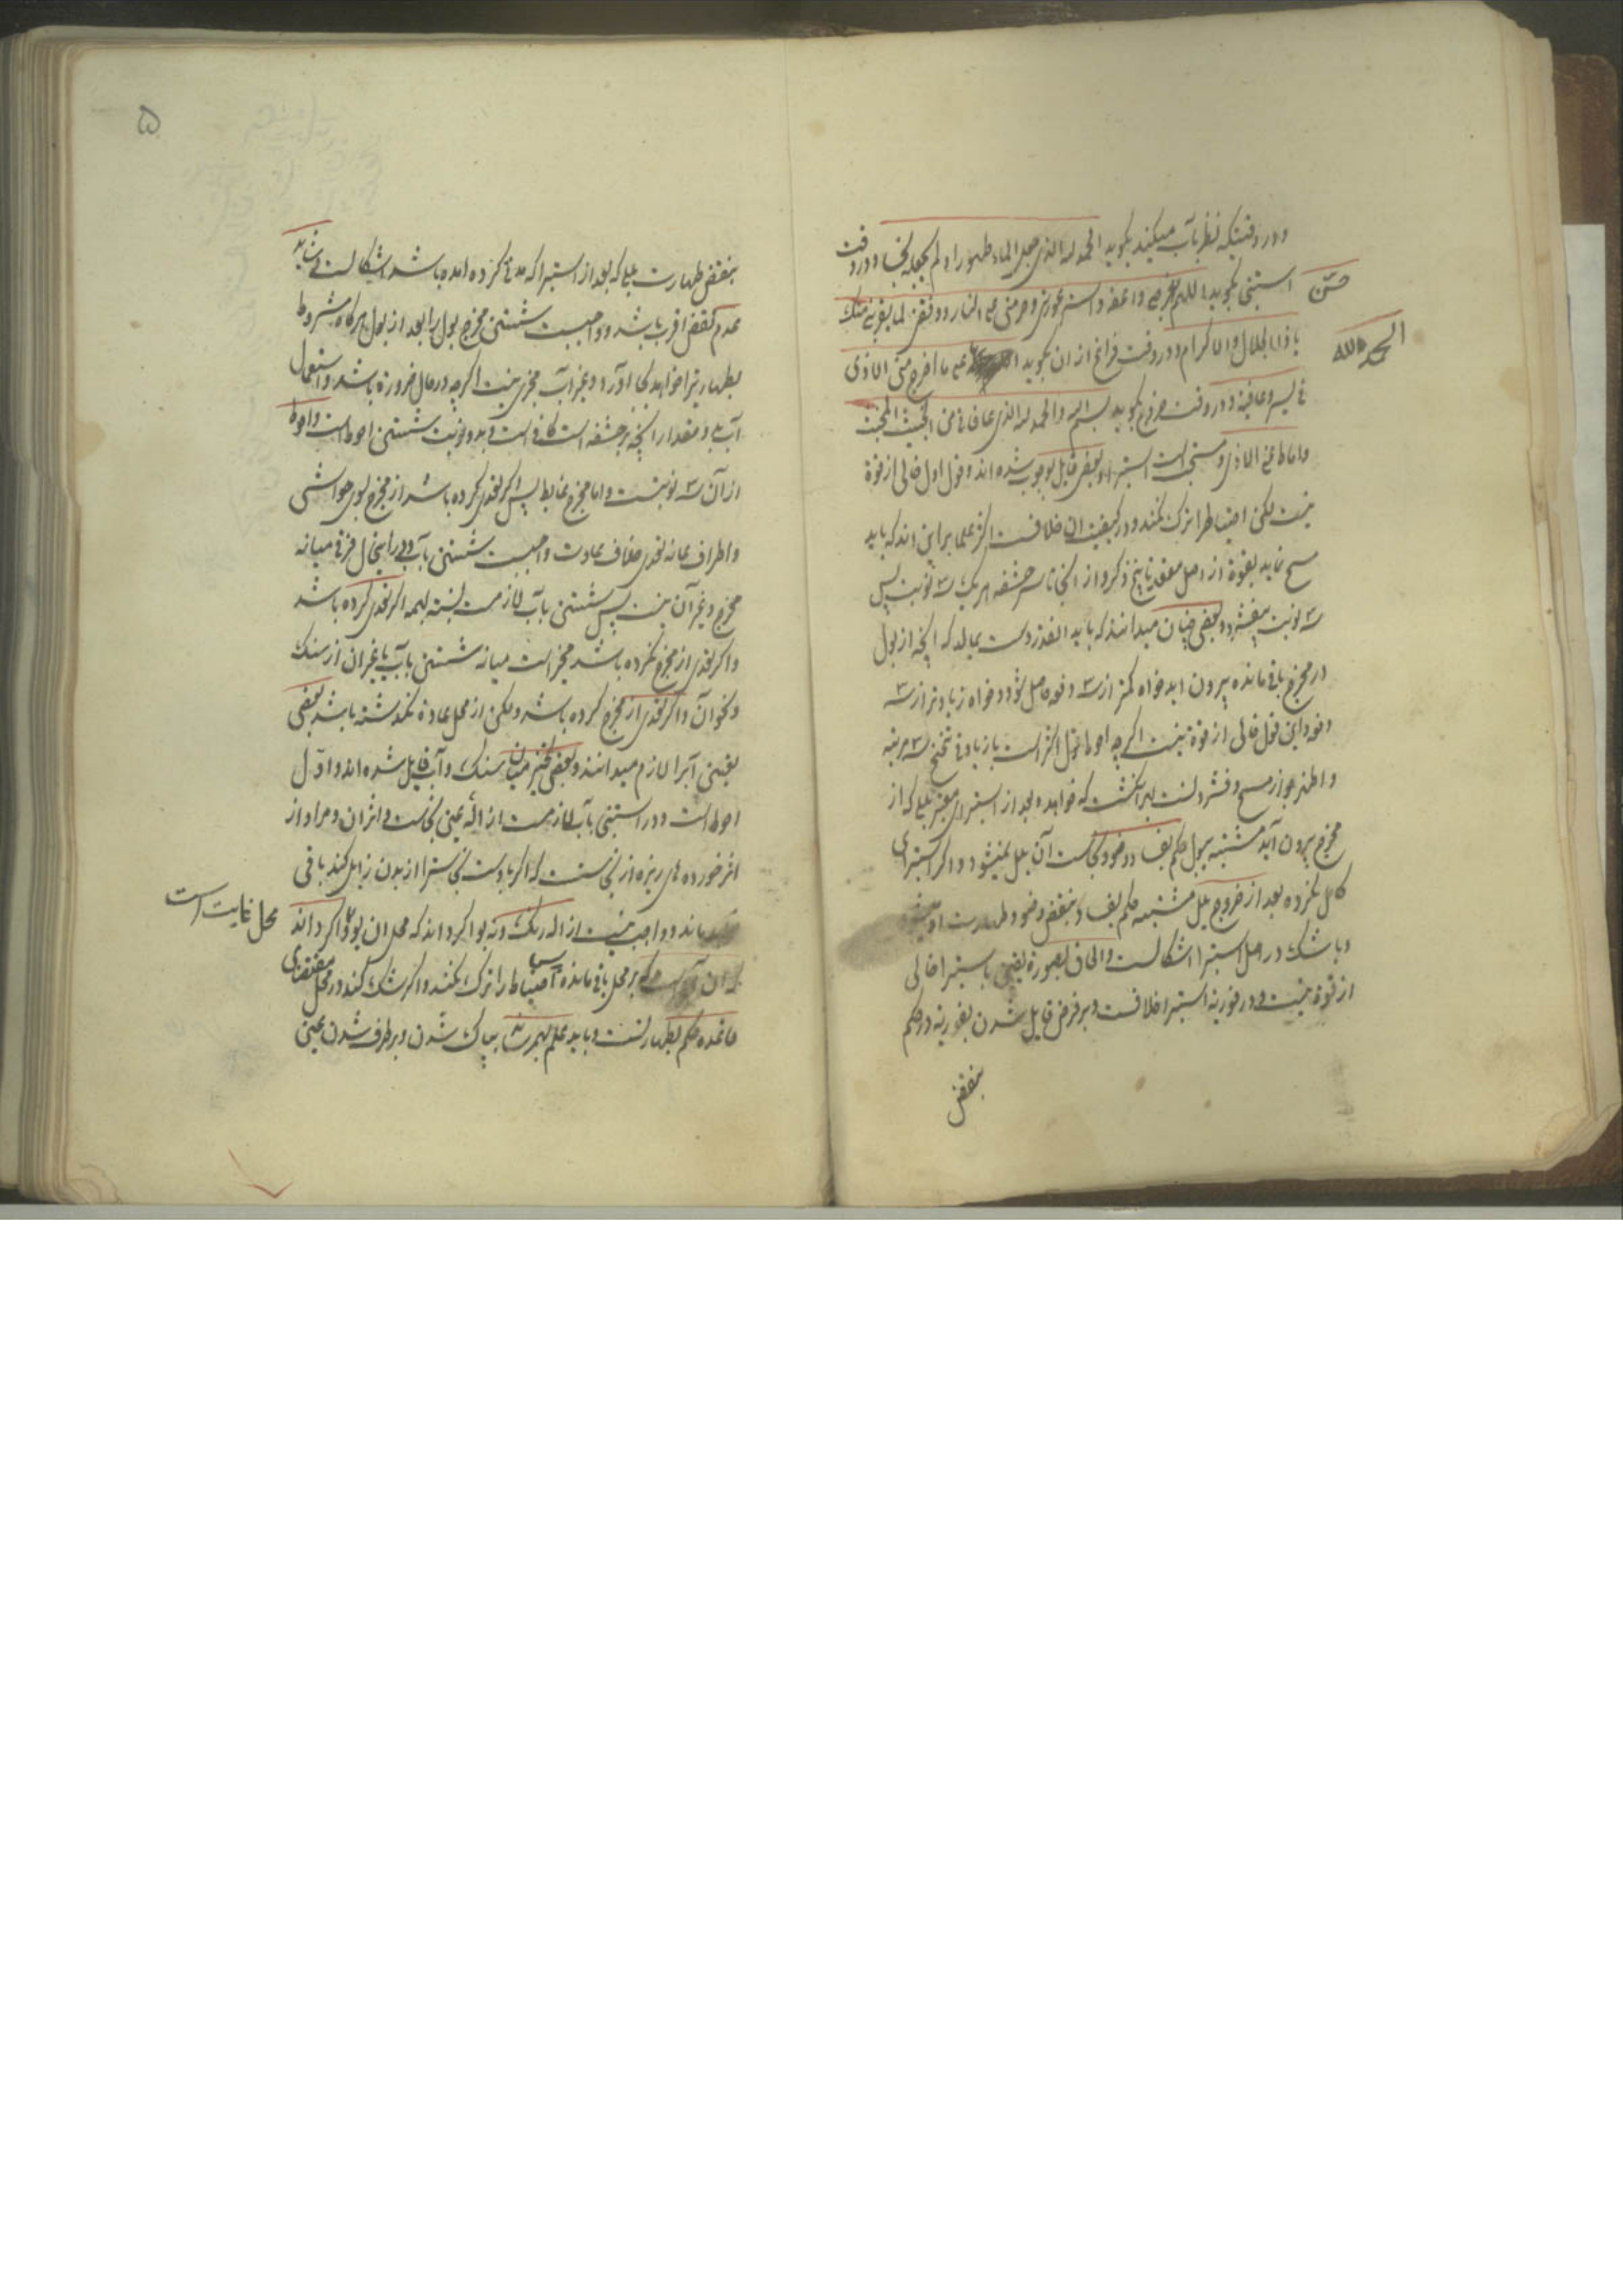 و در وقتیکه نظر بآب میکند بگوید الحمد لله الذی جعل الماء طهورا و لم یجعله نجسا و در وقت
استنجی بگوید اللهم حصن فرجی و اعفه و استر عورتی و حرمنی علی النار و وفقنی لما یقربنی منک
حصّن
یا ذا الجلال و الاکرام و در وقت فراغ از ان بگوید علی ما اخرج منی الاذی
الحمد لله
فی یسر و عافیة و در وقت خروج بگوید بسم الله و الحمد لله الذی عافانی من الخبیث المخبث
و اماط عنی الاذی و مستحب است استبرا و بعضی قایل بوجوب شده اند و قول اول خالی از قوة
نیست لکن احتیاط را ترک نکند و در کیفیت ان خلافست اکثر علما بر این اند که باید
مسح نماید بقوة از اصل مقعد تا بیخ ذکر و از انجا تا سر حشفه هر یک سه نوبت پس
سه نوبت بیفشرد و بعضی چنان میدانند که باید انقدر دست بمالد که انچه از بول
در مخرج باقی مانده بیرون اید خواه کمتر از سه دفعه حاصل شود و خواه زیادتر از سه
دفعه و این قول خالی از قوة نیست اگرچه احوط قول اکثر است با زیادتی تنحنح سه مرتبه
و اظهر جواز مسح و فشردنست بهر انگشت که خواهد و بعد از استبرای معتبر بللی که از
مخرج بیرون آید مشتبه ببول حکم بفساد وضو و نجاست آن بلل نمیشود و اگر استبرای
کامل نکرده بعد از خروج بلل مشتبه حکم بفساد و بنقض وضو و طهارت او میشود
و با شک در اصل استبرا اشکالست و الحاق بصورة یقین باستبرا خالی
از قوة نیست و در فوریة استبرا خلافست و بر فرض قایل شدن بفوریة در حکم
بنقض
۵
بنقض طهارت بللی که بعد از استبرا که مدتی کرده امده باشد اشکالست شاید
عدم نقض اقرب باشد و واجبست شستن مخرج بول را بعد از بول هرگاه مشروط
بطهارتیرا خواهد بجا آورد و غیر آب مجزی نیست اگرچه در حال ضرورة باشد و استعمال
آب بدو مقدار انچه بر حشفه است کافی است و بدو نوبت شستن احوط است و احوط
از آن سه نوبتست و اما مخرج غایط پس اگر تعدی کرده باشد از مخرج بسوی حواشی
و اطراف بمانه تعدی خلاف عادت واجبست شستن بآب و در اینحال فرقی میانه
مخرج و غیر آن نیست پس شستن بآب لازمست نسبت بهمه اگر تعدی کرده باشد
و اگر تعدی از مخرج نکرده باشد مخیر است میانه شستن بآب یا غیر ان از سنگ
و نحو آن و اگر تعدی از مخرج کرده باشد و لکن از محل عادة نگذشته باشد بعضی
تعیین آبرا لازم میدانند و بعضی بتخییر میان سنگ و آب قایل شده اند و اوّل
احوط است و در استنجی بآب لازمست ازالهٔ عین نجاست و اثر ان و مراد از
اثر خورده های ریزه از نجاست که اگر با دست نجاسترا از بدن زایل کند باقی
میماند و واجب نیست ازاله رنگ و نه بو اگر داند که محل ان بو و اگر داند
محل غایت است
که ان بر محل باقی مانده احتیاط را ترک نکند و اگر شک کند در محل مقتضای
قاعده حکم بطهارتست و باید علم بهمرساند بپاک شدن و برطرف شدن عین